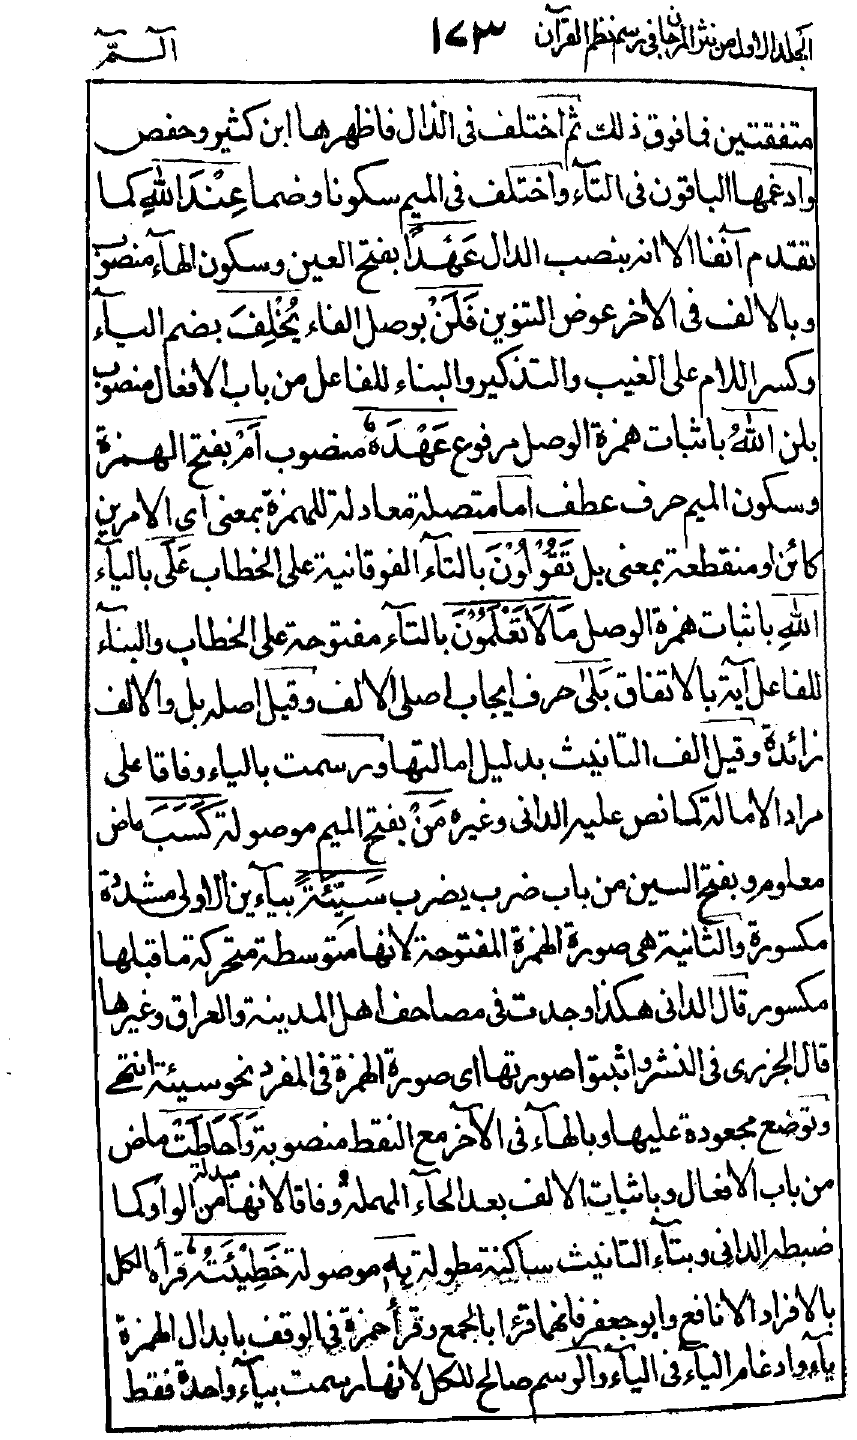 الجلد الاول من نثر المرجان في رسم نظم القرآن ١٧٣ الٓـمّٓ
متفقتين فما فوق ذلك ثم اختلف فى الذال فاظهرها ابن كثير وحفص
وادغمها الباقون فى التآء واختلف فى الميم سكونا وضما عِنْدَ اللّٰهِ كما
تقدم آنفا الا انه بنصب الدال عَهْدًا بفتح العين وسكون الهآء منصوب
وبالالف فى الاخر عوض التنوين فَلَنْ بوصل الفاء يُخْلِفَ بضم اليآء
وكسر اللام على الغيب والتذكير والبناء للفاعل من باب الافعال منصوب
بلن اللّٰهُ باثبات همزة الوصل مرفوع عَهْدَهٗ منصوب اَمْ بفتح الهمزة
وسكون الميم حرف عطف اما متصلة معادلة للهمزة بمعنى اى الامرين
كائن او منقطعة بمعنى بل تَقُوْلُوْنَ بالتآء الفوقانية على الخطاب عَلَى باليآء
اللّٰهِ باثبات همزة الوصل مَالَا تَعْلَمُوْنَ بالتآء مفتوحة على الخطاب والبنآء
للفاعل آية بالاتفاق بَلٰى حرف ايجاب اصلى الالف وقيل اصله بل والالف
زائدة وقيل الف التانيث بدليل امالتها ورسمت بالياء وفاقا على
مراد الامالة كما نص عليه الدانى وغيره مَنْ بفتح الميم موصولة كَسَبَ ماض
معلوم وبفتح السين من باب ضرب يضرب سَيِّئَةً بيآءين الاولى مشددة
مكسورة والثانية هى صورة الهمزة المفتوحة لانها متوسطة متحركة ما قبلها
مكسور قال الدانى هكذا وجدت فى مصاحف اهل المدينة والعراق وغيرها
قال الجزرى فى النشر واثبتوا صورتها اى صورة الهمزة فى المفرد نحو سيئة انتهى
وتوضع مجعودة عليها وبالهآء فى الآخر مع النقط منصوبة وَاَحَاطَتْ ماض
من باب الافعال وباثبات الالف بعد الحآء المهملة وفاقا لانها مبدلة من الواو كما
ضبطه الدانى وبتآء التانيث ساكنة مطولة بِهٖ موصولة خَطِيْئَتُهٗ قرأه الكل
بالافراد الا نافع وابو جعفر فانهما قرءا بالجمع وقرأ حمزة فى الوقف بابدال الهمزة
يآء وادغام اليآء فى اليآء والرسم صالح للكل لانها رسمت بيآء واحدة فقط